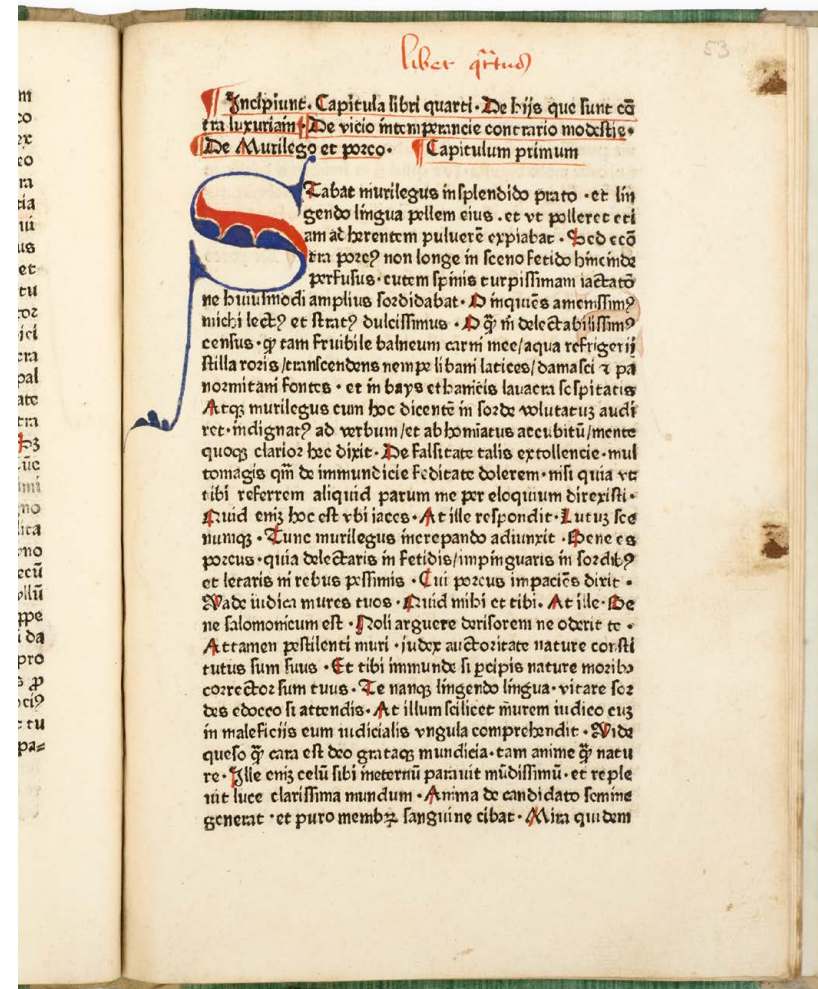 liber qrtus
53
¶ Incipiunt. Capitula libri quarti. De hijs que sunt cō
tra luxuriam ¶ De vicio intemperancie contrario modestie.
¶ De Murilego et porco. ¶ Capitulum primum
STabat murilegus in splendido prato . et lin
gendo lingua pellem eius . et vt polleret eti
am ad herentem puluerē expiabat . Sed ecō
tra porcꝰ non longe in sceno fetido hincinde
perfusus . cutem spinis turpissimam iactatō
ne huiusmodi amplius sordidabat . O inquiēs amenissimꝰ
michi lectꝰ et stratꝰ dulcissimus . O q̄ꝫ m̄ delectabilissimꝰ
census . ꝙ tam fruibile balneum carni mee/aqua refrigerij
stilla roris/transcendens nempe libani latices/damasci ⁊ pa
normitani fontes . et in bays ethanicis lauacra sospitatis
Atqꝫ murilegus cum hoc dicentē in sorde volutatuꝫ audi
ret . indignatꝰ ad verbum/et abhominatus accubitū/mente
quoqꝫ clarior hec dixit . De falsitate talis extollencie . mul
tomagis qm̄ de immundicie feditate dolerem . nisi quia vt
tibi referrem aliquid parum me per eloquium direxisti .
Quid eniꝫ hoc est vbi iaces . At ille respondit . Lutuꝫ sce
numqꝫ . Tunc murilegus increpando adiunxit . Bene es
porcus . quia delectaris in fetidis/impinguaris in sordibꝰ
et letaris ni rebus pessimis . Cui porcus impaciēs dixit .
Vade iudica mures tuos . Quid mihi et tibi . At ille . Be
ne salomonicum est . Noli arguere derisorem ne oderit te .
Attamen pestilenti muri . iudex auctoritate nature consti
tutus sum suus . Et tibi immunde si ꝑcipis nature moribꝰ
corrector sum tuus . Te nanqꝫ lingendo lingua . vitare sor
des edoceo si attendis . At illum scilicet murem iudico cuꝫ
in maleficijs eum iudicialis vngula comprehendit . Vide
queso q̄ꝫ cara est deo grataqꝫ mundicia . tam anime q̄ꝫ natu
re . Ille eniꝫ celū sibi ineternū parauit mūdissimū . et reple
uit luce clarissima mundum . Anima de candidato semine
generat . et puro membꝝ sanguine cibat . Mira quidem
m
co
ex
eo
ra
tia
ui
us
et
tu
toz
ici
cra
pal
ate
tra
ūc
imi
no
lica
mo
ecū
ollū
ꝓpe
i da
pro
s ꝓ
ociꝰ
tu
pa=